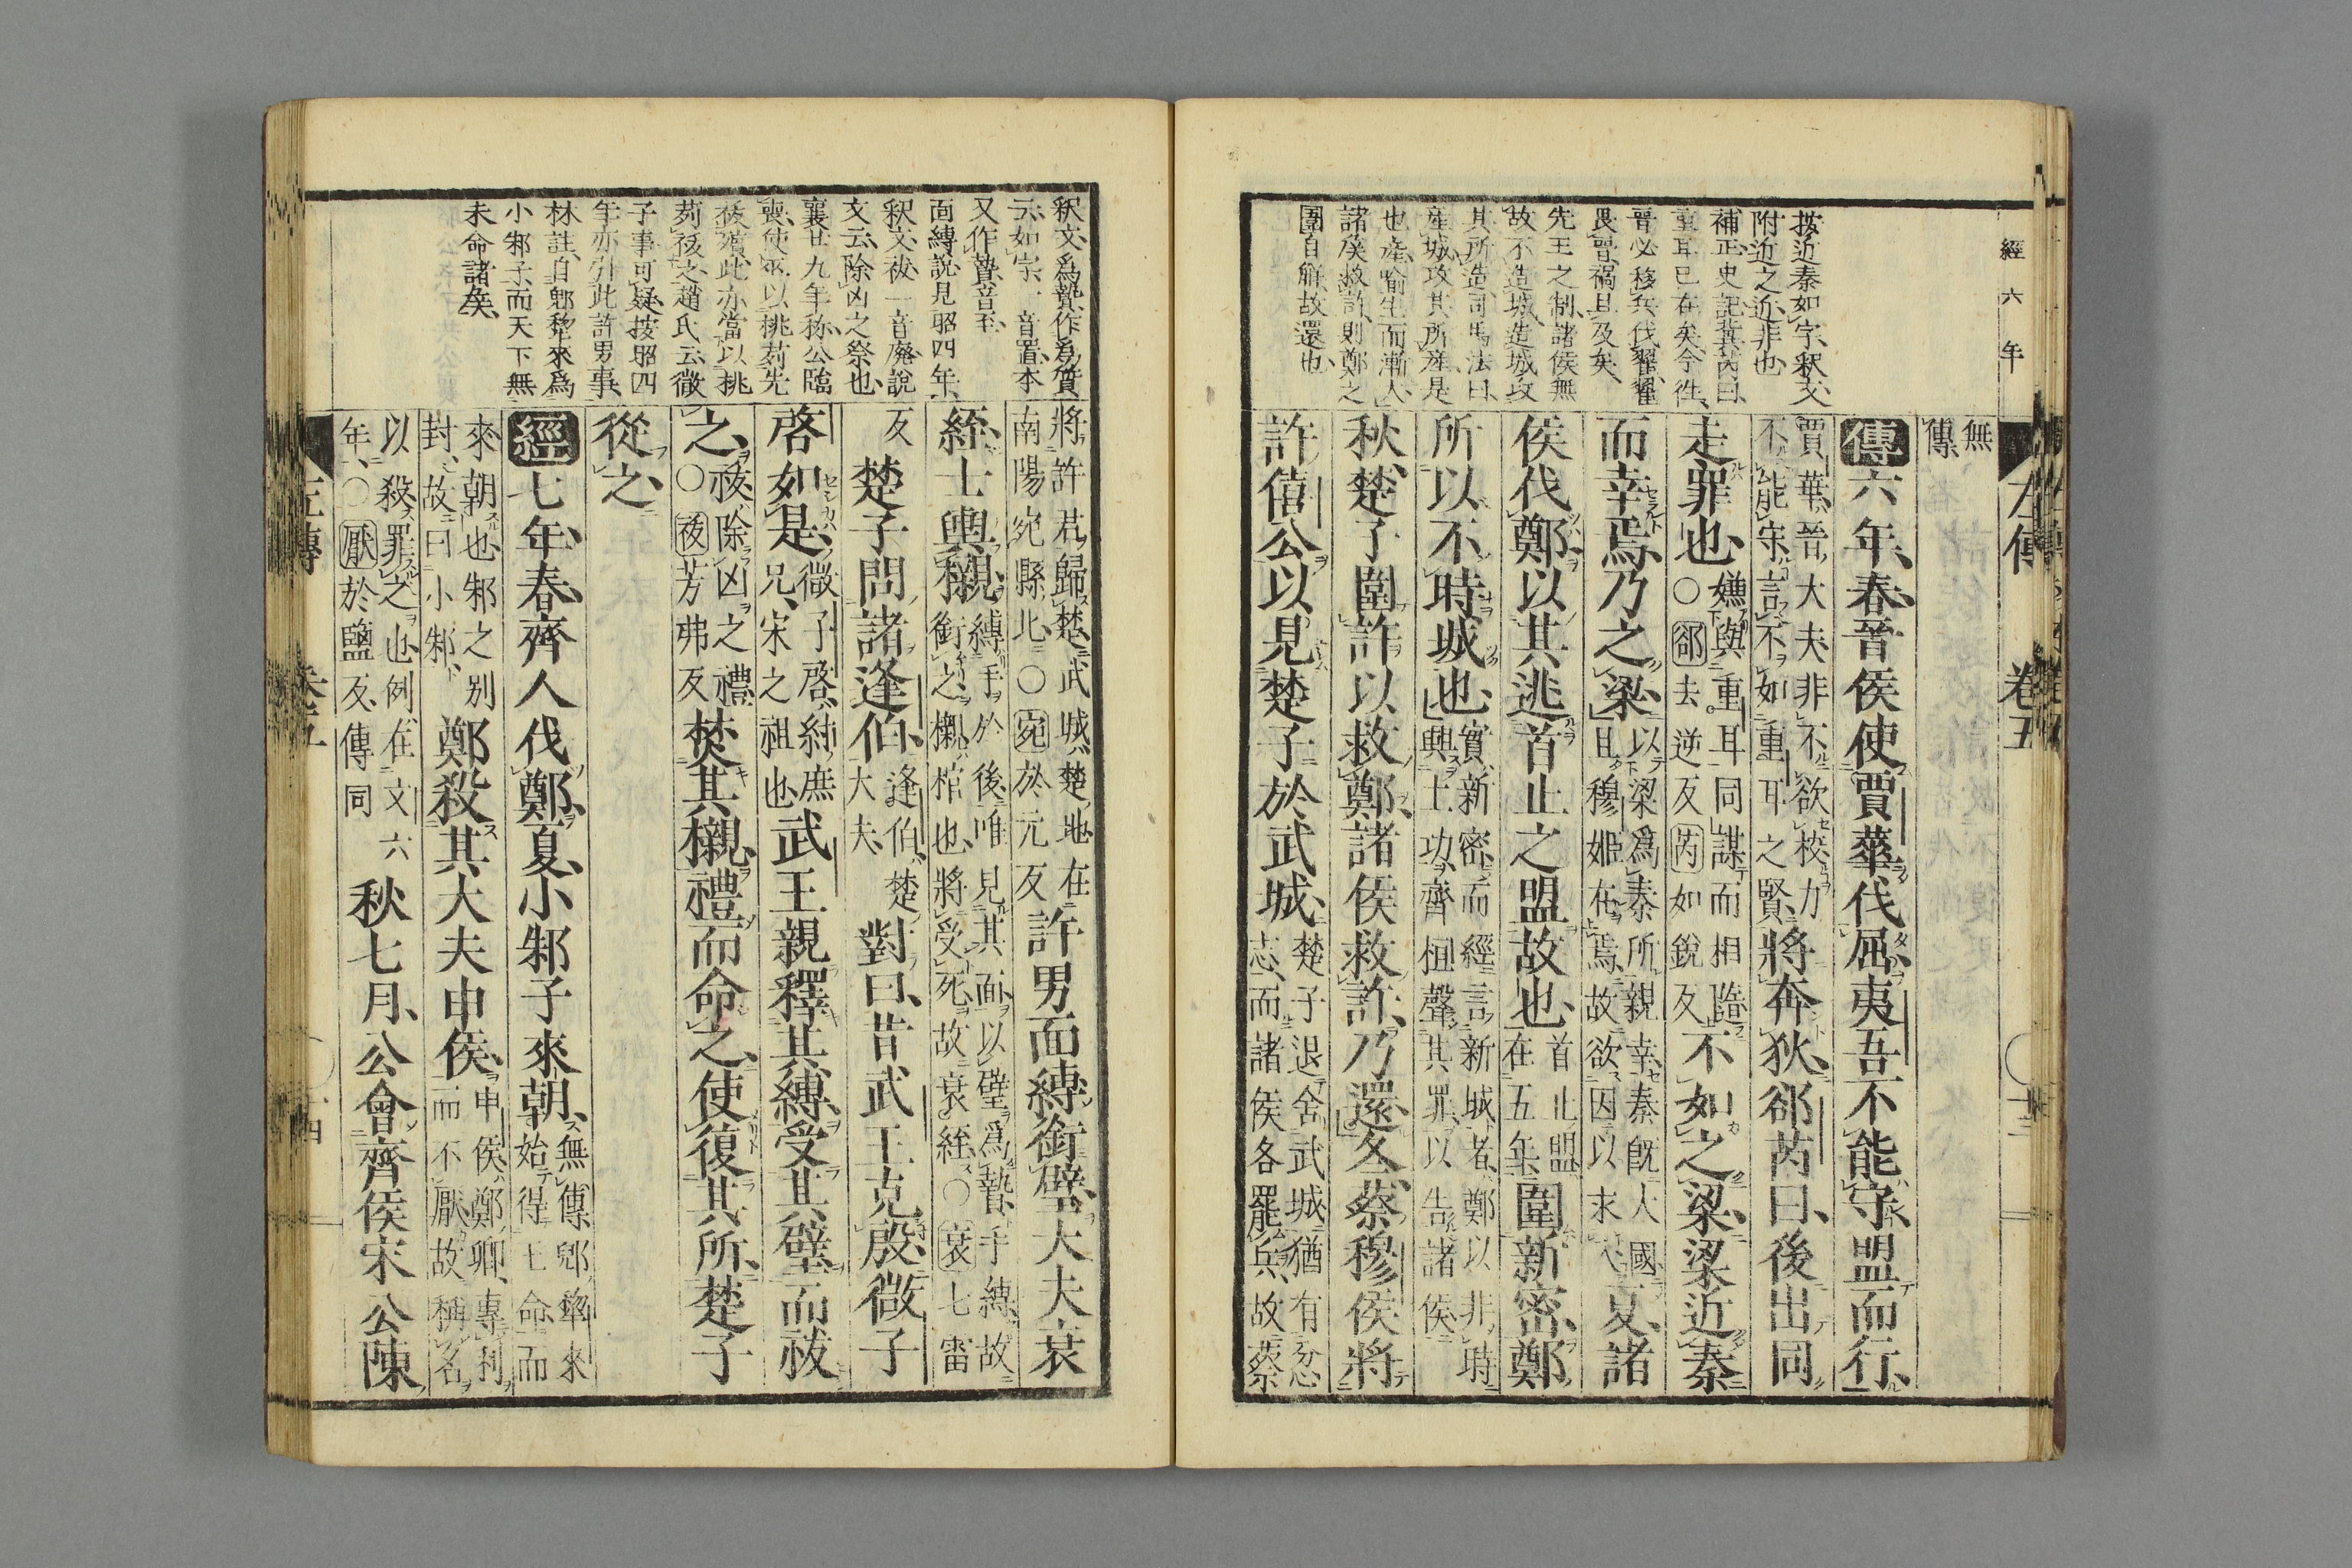 經六年
左傳　卷五　十三
按近秦如字釋文
附近之近非也
補正史記冀芮曰
重耳已在矣今往
晉必移兵伐翟翟
畏晉禍且及矣
先王之制諸侯無
故不造城造城攻
其所造司馬法曰
產城攻其所產是
也產喻生而漸人
諸侯救許則鄭之
圍自解故還也
無
傳
傳六年春晉侯使賈華伐屈夷吾不能守盟而行
賈華晉大夫非不欲校力
不能守言不如重耳之賢
將奔狄郤芮曰後出同
走罪也
嫌與重耳同謀而相隨
○郤去逆反芮如銳反
不如之梁梁近秦
而幸焉乃之梁
以梁爲秦所親幸秦既大國
且穆姬在焉故欲因以求入
夏諸
侯伐鄭以其逃首止之盟故也
首止盟
在五年
圍新密鄭
所以不時城也
實新密而經言新城者鄭以非時
興土功齊桓聲其罪以告諸侯
秋楚子圍許以救鄭諸侯救許乃還冬蔡穆侯將
許僖公以見楚子於武城
楚子退舍武城猶有忿
志而諸侯各罷兵故蔡
釋文爲贄作爲質
云如字一音置本
又作贄音至
面縛說見昭四年
釋文祓一音廢說
文云除凶之祭也
襄廿九年稱公臨
喪使巫以桃茢先
祓殯此亦當以桃
茢祓之趙氏云微
子事可疑按昭四
年亦引此許男事
林註自郳犂來爲
小邾子而天下無
未命諸矦
將許君歸楚武城楚地在
南陽宛縣北○宛於元反
許男面縛銜璧大夫衰
絰士輿櫬
縛手於後唯見其面以璧爲贄手縛故
銜之櫬棺也將受死故衰絰○衰七雷
反
楚子問諸逢伯
逢伯楚
大夫
對曰昔武王克殷微子
啓如是
微子啓紂庶
兄宋之祖也
武王親釋其縛受其璧而祓
之
祓除凶之禮
○祓芳弗反
焚其櫬禮而命之使復其所楚子
從之
經七年春齊人伐鄭夏小邾子來朝
無傳郳犂來
始得王命而
來朝也邾之別
封故曰小邾
鄭殺其大夫申侯
申侯鄭卿專利
而不厭故稱名
以殺罪之也例在文六
年○厭於鹽反傳同
秋七月公會齊侯宋公陳
左傳　卷五　十四